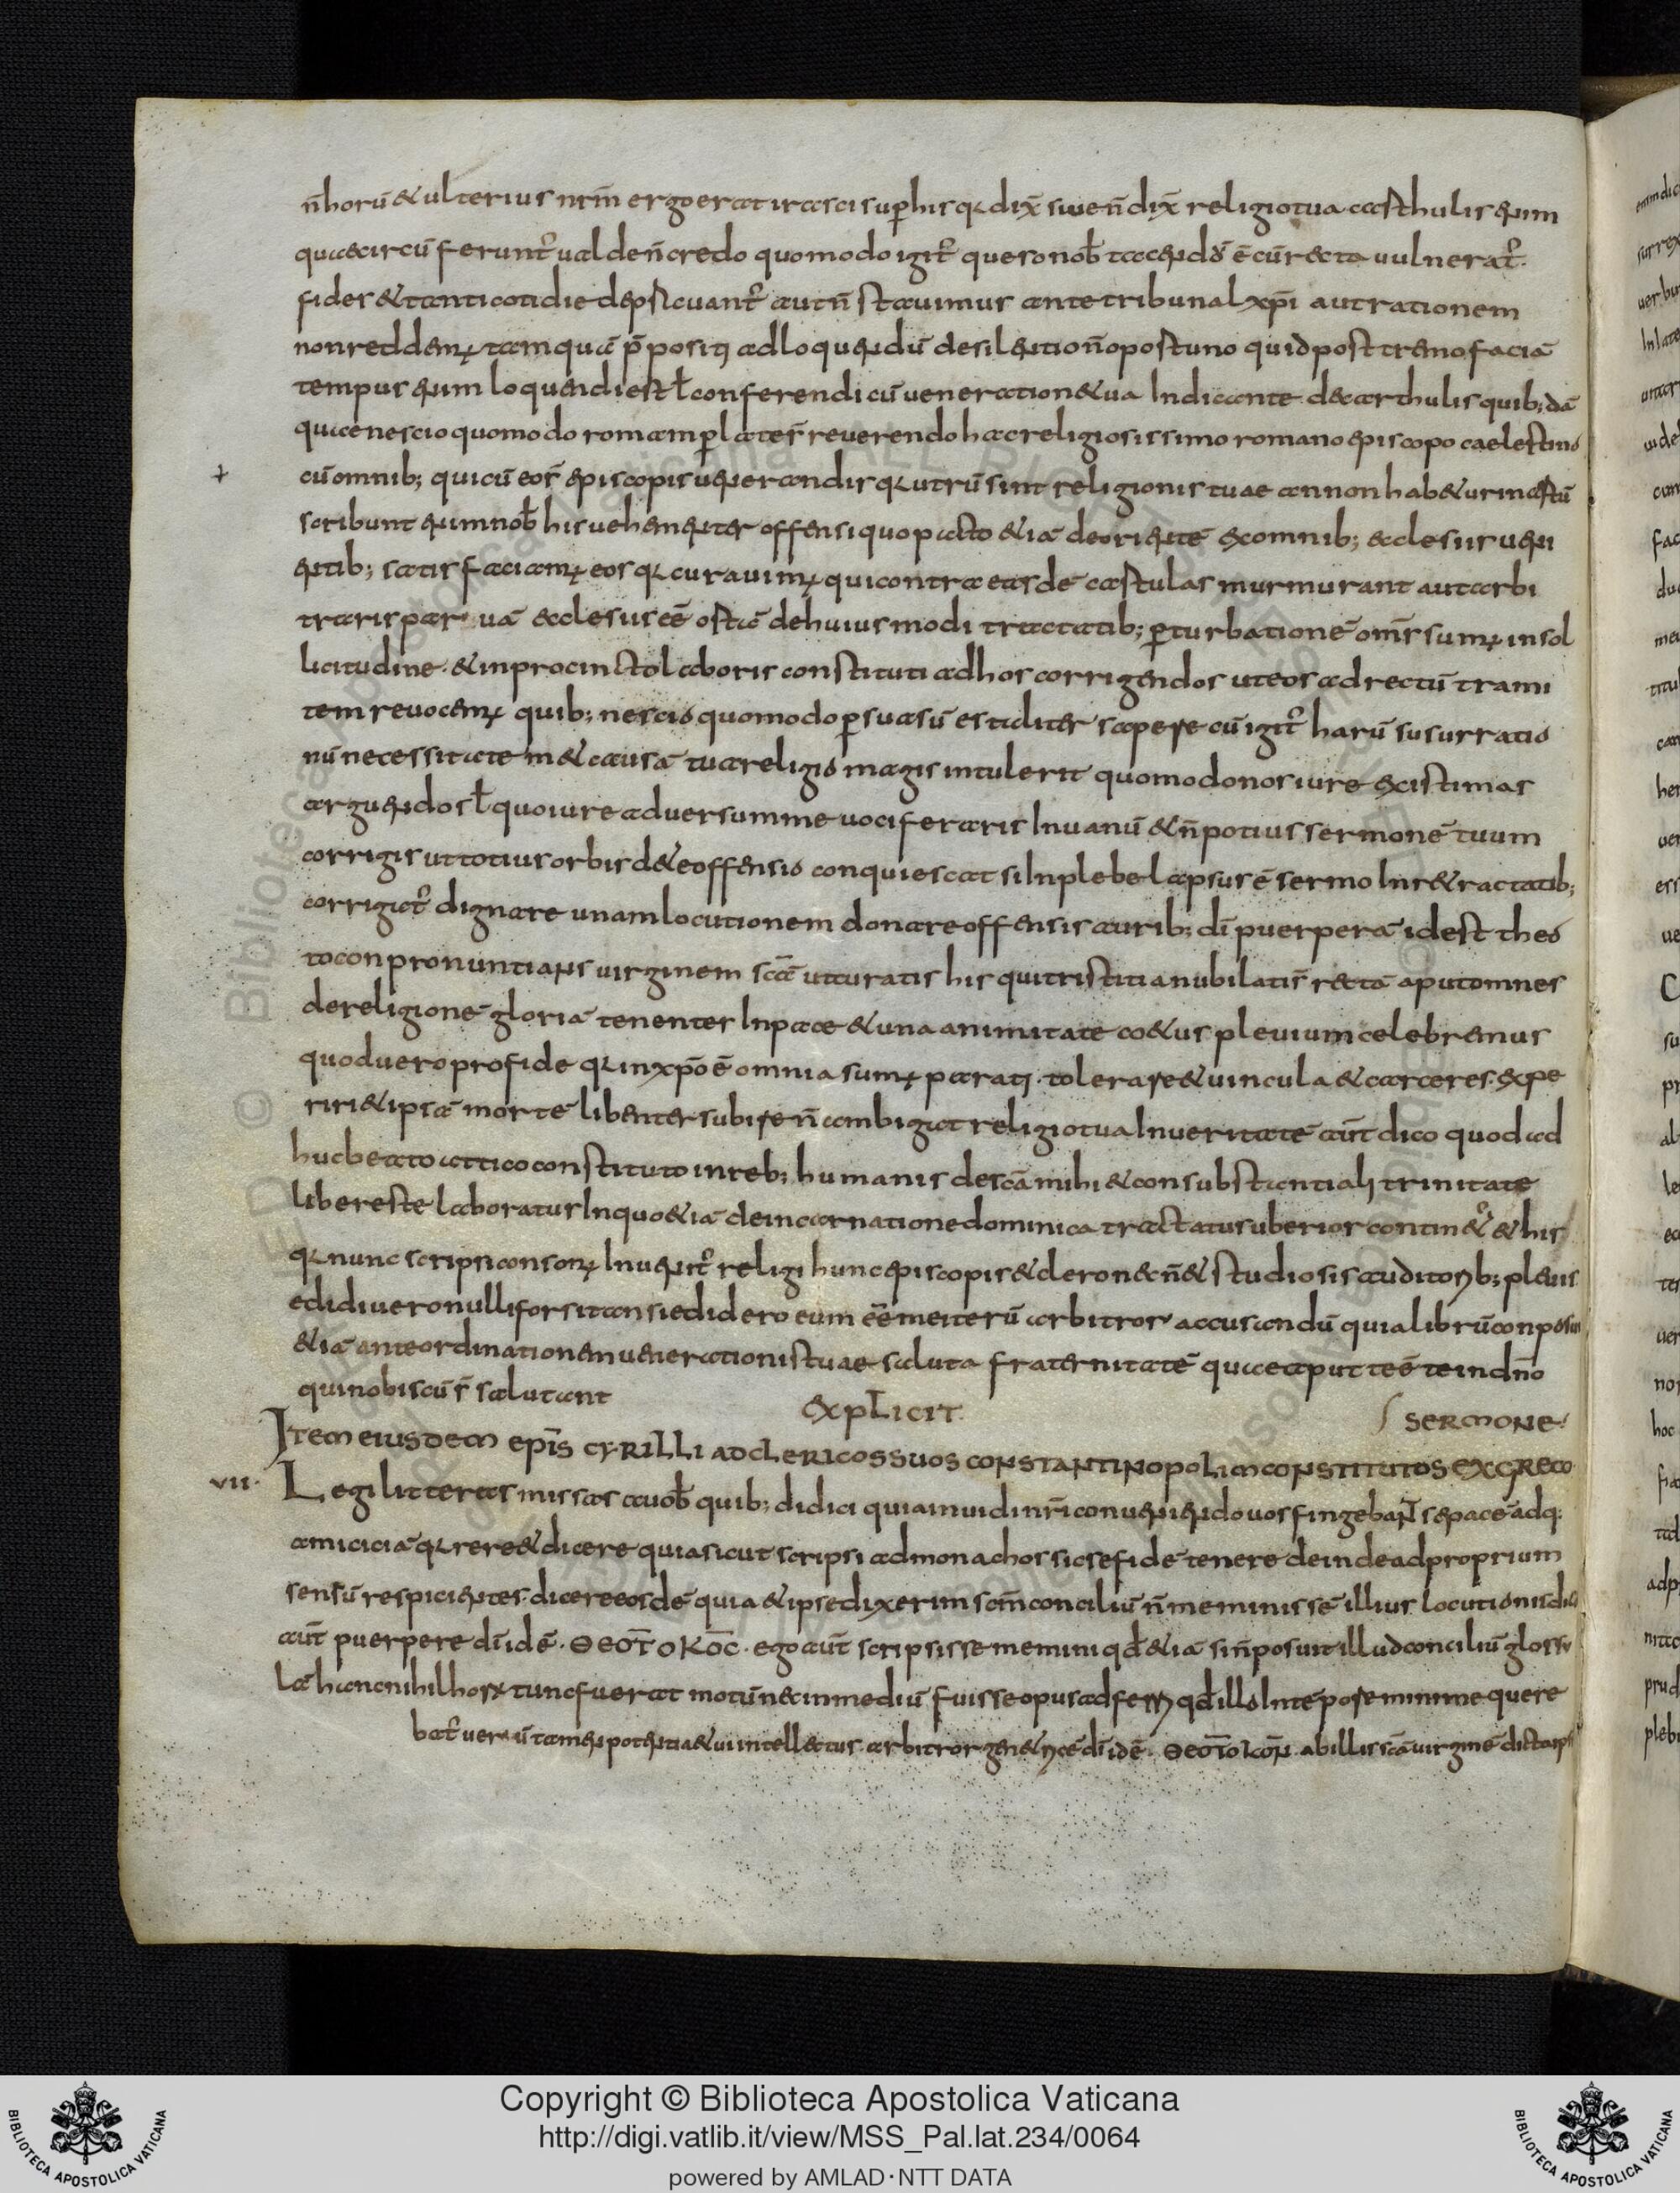 n̄ horū & ulterius nr̄m ergo erat irasci sup his q; dix̄ siue n̄ dix̄ religio tua carthulis enim
quae circū ferunt̄ ualde n̄ credo quomodo igit̄ quero nob̄ tacendū ē cū recta uulnerat̄.
fides & tanti cotidie depsicuant̄ aut n̄ stauimus ante tribunal xp̄i aut rationem
non reddem; tam quā p̄positi ad loquendū de silention̄ oportuno quid post tremo faciā
tempus enim loquendi est ł conferendi cū ueneration& ua Indicante de carthulis quib; dā
quae nescio quomodo romam plater̄ reuerendo hac religiosissimo romano episcopo caelestino
+ cū omnib; qui cū eor̄ episcopis uenerandis q; utrū sint religionis tuae an non hab&ur incertū
scribunt enim nob̄ his uehementer offensi quo pacto &iā de oriente ex omnib; ecclesiis ueni
entib; satis faciam; eos q; curauim; qui contra easdē cartulas murmurant aut arbi
traris paruā ecclesiis eē ortā de huius modi tractatib; pturbationē om̄s sum; in sol
licitudine & in procincto laboris constituti ad hos corrigendos ut eos ad rectū trami
tem reuocem; quib; nescio quomodo psuasū est aliter sapere cū igit̄ harū susurratio
nū necessitate m& causā tua religio magis intulerit quomodo nos iure existimas
arguendos ł quo iure aduersum me uociferaris In uanū & n̄ potius sermonē tuum
corrigis ut totius orbis d&e offensio conquiescat si In plebe lapsus ē sermo In r&ractatib;
corrigat̄ dignare unam locutionem donare offensis aurib; dī puerperā id est theo
tocon pronuntians uirginem scā ut curatis his qui tristitia nubilatis r̄ rectā aput omnes
de religionē gloriā tenentes In pace & una animitate co&us pleuium celebremus
quod uero pro fide q; in xp̄o ē omnia sum; parati. tolerare & uincula & carceres. expe
riri & ipsā mortē libenter subire n̄ ambigat religio tua In ueritate aūt dico quod ad
huc beato attico constituto in reb; humanis de scā mihi & consubstantiali trinitate
liber este laboratus In quo &iā de incarnatione dominica tractatus uberior contin& & his
q; nunc scripsi conson; Inuenit̄ relegi hunc episcopis & clero nec n̄ & studiosis auditorib; pleuis
edidi uero nulli forsitan si edidero eum eē me iterū arbitror accusandū quia librū conposui
&iā ante ordinationem uenerationis tuae saluta fraternitatē quae aput te ē te in dn̄o
qui nobiscū s̄ salutant
EXPLICIT
Item eiusdem ep̄is cyrilli ad clericos suos constantinopolim constitutos ex greco sermone
VII. Legi litteras missas auob̄ quib; didici quia inuidi nr̄i conueniendo uos fingebant se pacē adq;
amiciciā q;rere & dicere quia sicut scripsi ad monachos sic se fidē tenere deinde ad proprium
sensū respicientes. dicere eosdē quia & ipse dixerim scm̄ conciliū n̄ meminisse illius locutionis dico
aūt puerpere dī idē. ΘΕΟΤΟΚΟC. ego aūt scripsisse memini qd̄ &iā si n̄ posuit illud conciliū glossu
lā hanc nihil horū tunc fuerat motū nec in mediū fuisse opus ad ferri qd̄ illo In tēpore minime quere
bat̄ uerū tamen potentia & ui intellectus arbitror gen&ricē dī idē. ΘΕΟΤΟΚΟΝ. ab illis scā uirginē dicta ips
Copyright © Biblioteca Apostolica Vaticana
http://digi.vatlib.it/view/MSS_Pal.lat.234/0064
powered by AMLAD·NTT DATA
BIBLIOTECA APOSTOLICA VATICANA
BIBLIOTECA APOSTOLICA VATICANA